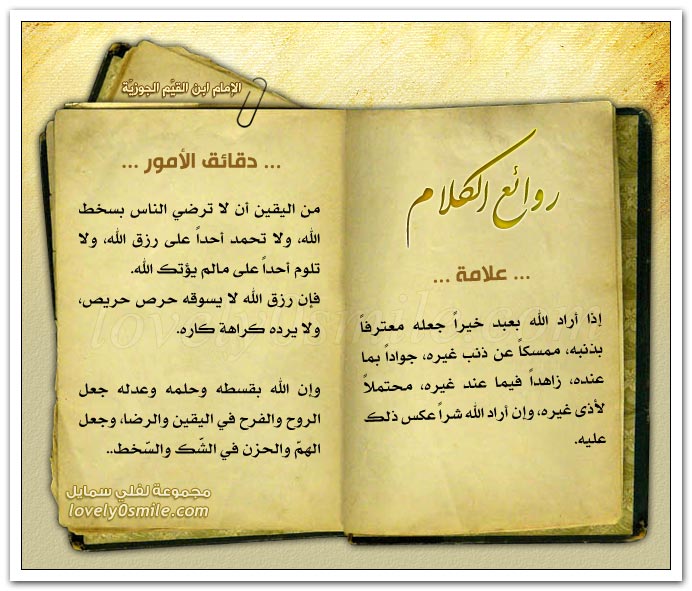 الإمام ابن القيَّم الجوزيَّة
روائع الكلام
... علامة ...
إذا أراد الله بعبد خيراً جعله معترفاً
بذنبه، ممسكاً عن ذنب غيره، جواداً بما
عنده، زاهداً فيما عند غيره، محتملاً
لأذى غيره، وإن أراد الله شراً عكس ذلك
عليه.
... دقائق الأمور ...
من اليقين أن لا ترضي الناس بسخط
الله، ولا تحمد أحداً على رزق الله، ولا
تلوم أحداً على مالم يؤتك الله.
فإن رزق الله لا يسوقه حرص حريص،
ولا يرده كراهة كاره.
وإن الله بقسطه وحلمه وعدله جعل
الروح والفرح في اليقين والرضا، وجعل
الهمّ والحزن في الشّك والسّخط..
مجموعة لفلي سمايل
lovely0smile.com